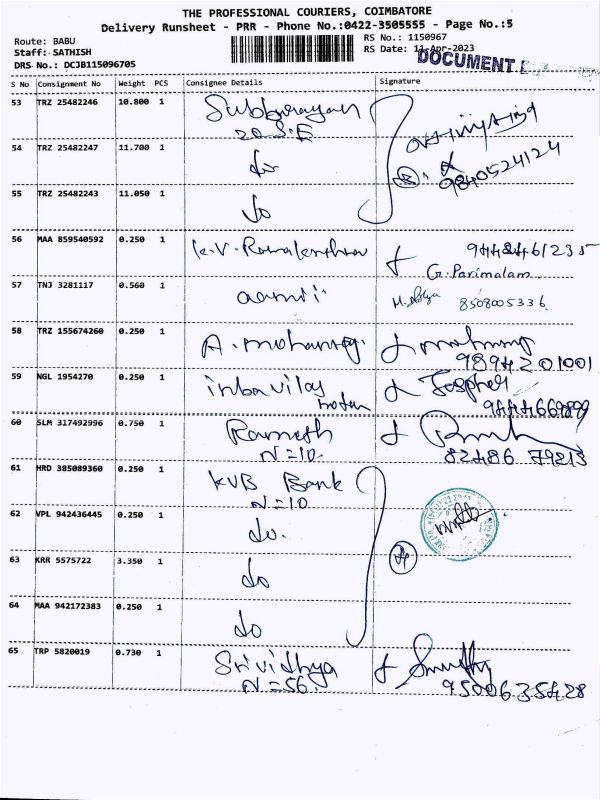 THE PROFESSIONAL COURIERS, COIMBATORE
Delivery Runsheet - PRR - Phone No.:0422-3505555 - Page No.:5
Route: BABU
RS No.: 1150967
Staff: SATHISH
RS Date: 11-Apr-2023
DRS No.: DCJB115096705
DOCUMENT
S No Consignment No Weight PCS Consignee Details Signature
53 TRZ 25482246 10.800 1 Subburayan
20 S.E
54 TRZ 25482247 11.700 1 do
9840524124
55 TRZ 25482243 11.050 1 do
56 MAA 859540592 0.250 1 K.V. 9448461235
G. Parimalam
57 TNJ 3281117 0.560 1 8508005336
58 TRZ 155674260 0.250 1 A.
9894201001
59 NGL 1954270 0.250 1 inbavilas
60 SLM 317492996 0.750 1 Ramesh
N=10. 82486 79213
61 HRD 385089360 0.250 1 KVB Bank
N=10
62 VPL 942436445 0.250 1 do.
63 KRR 5575722 3.350 1 do
64 MAA 942172383 0.250 1 do
65 TRP 5820019 0.730 1 Srividhya
N=56. 9500635428